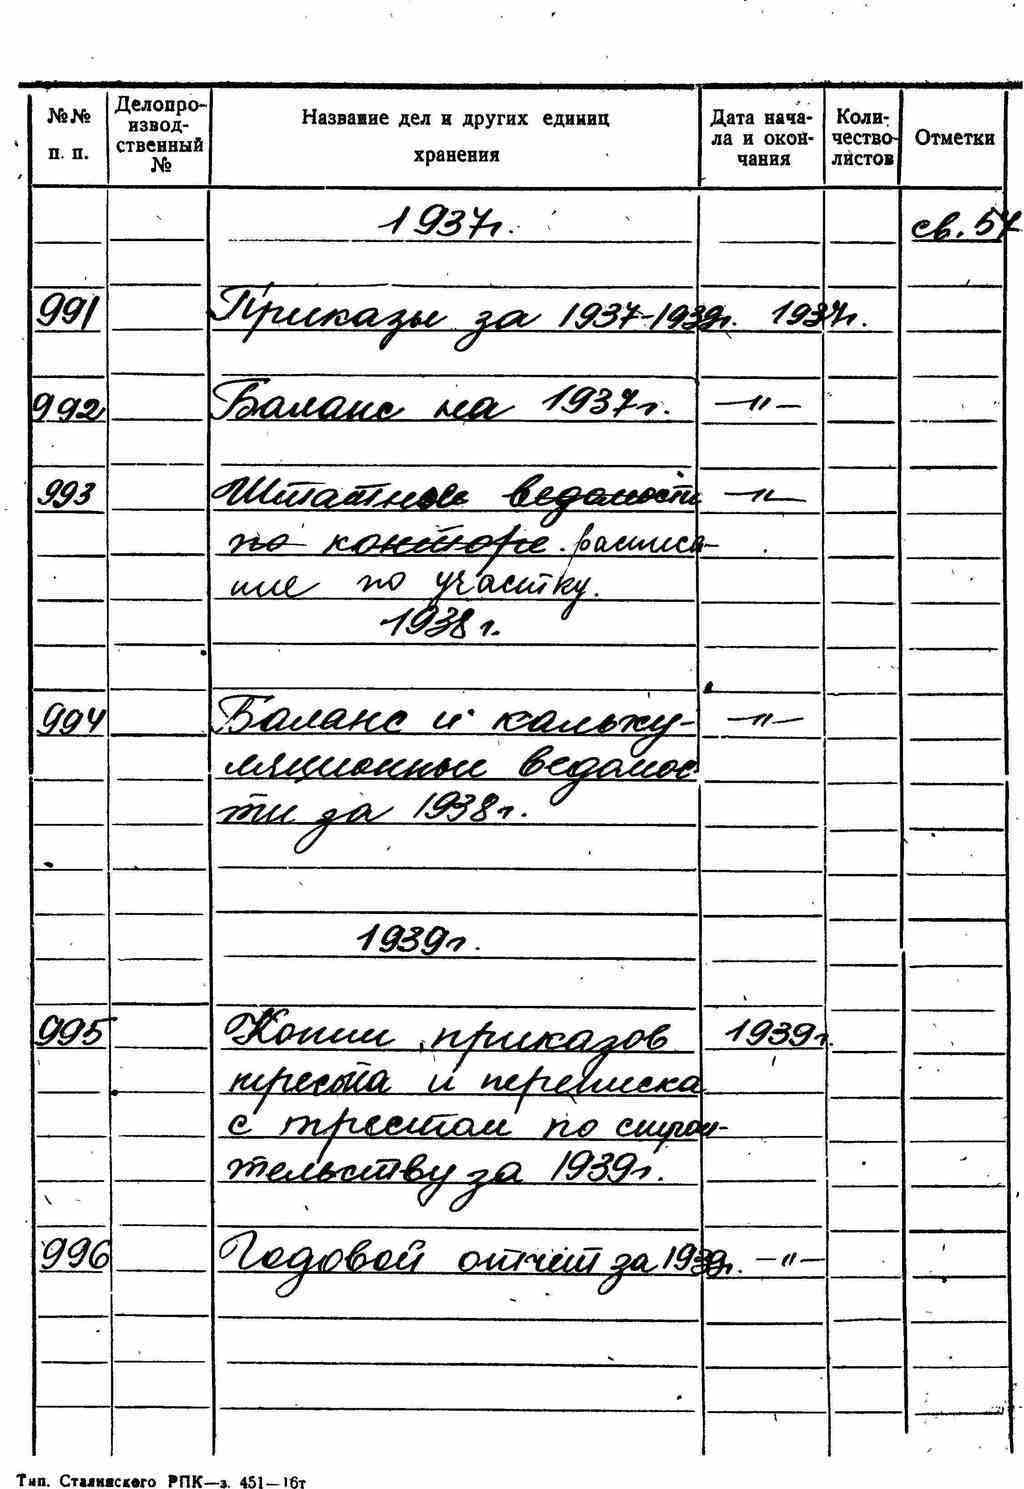 №№ п. п. Делопроизвод- ственный № Название дел и других единиц хранения Дата нача- ла и окон- чания Коли- чество листов Отметки
1937г. св. 57
991 Приказы за 1937-1939г. 1937г.
992 Баланс на 1937г. —"—
993 Штатное ведомости —"—
по конторе. расписа-
ние по участку.
1938г.
994 Баланс и кальку- —"—
ляционные ведомос
ти за 1938г.
1939г.
995 Копии приказов 1939г.
треста и переписка
с трестом по строи-
тельству за 1939г.
996 Годовой отчет за 1939г. —"—
Тип. Сталинского РПК—з. 451—16т